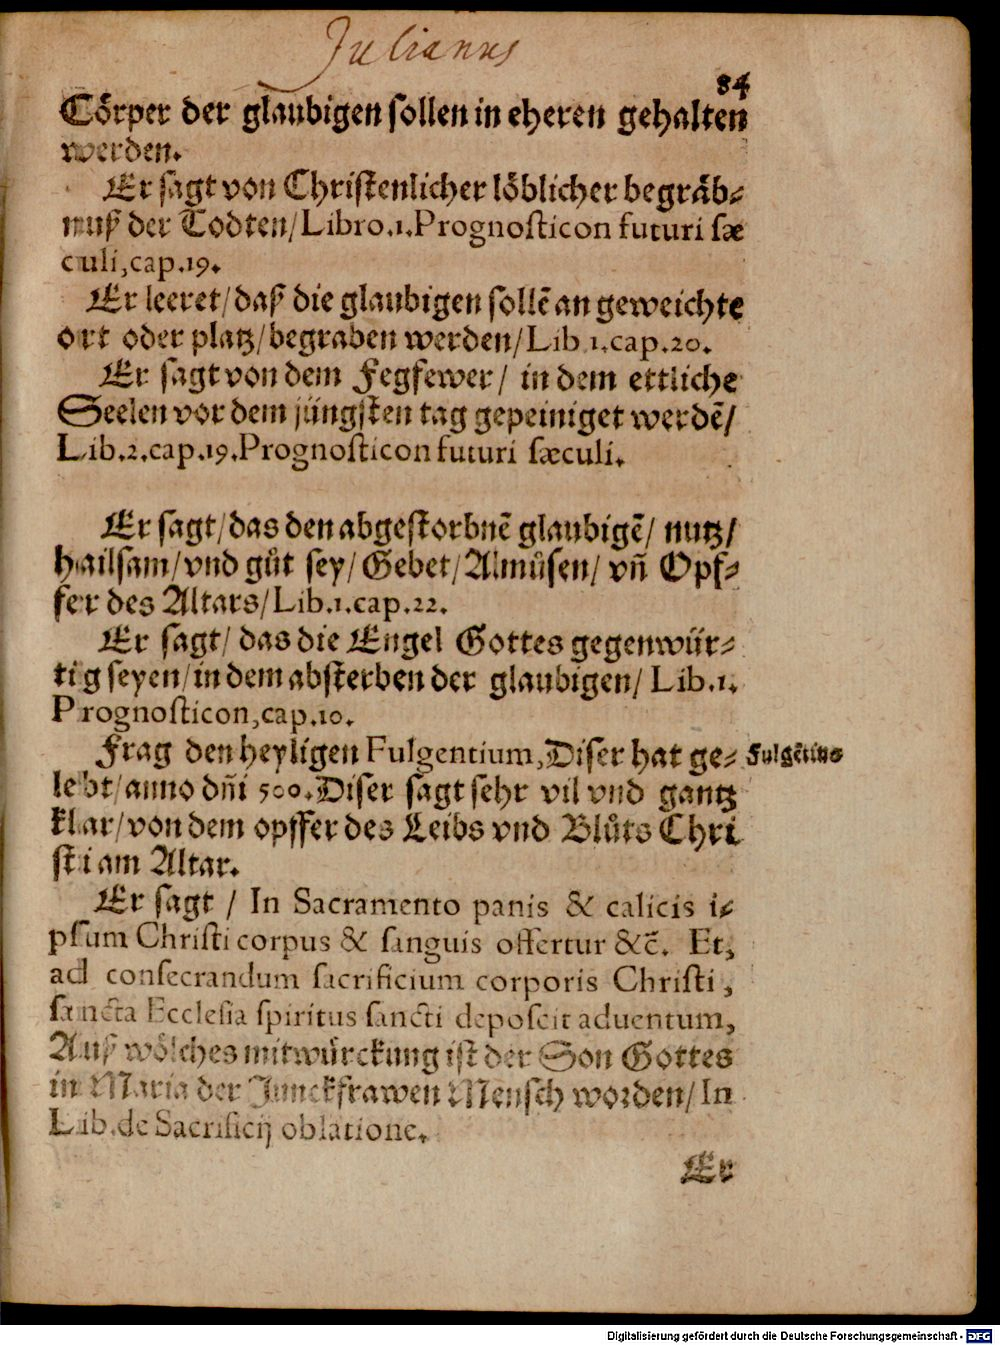 Julianus
84
Cörper der glaubigen sollen in eheren gehalten
werden.
Er sagt von Christenlicher löblicher begräb-
nuß der Todten/ Libro.1.Prognosticon futuri sæ
culi, cap.19.
Er leeret/ daß die glaubigen sollẽ an geweichte
ort oder platz/ begraben werden/ Lib.1.cap.20.
Er sagt von dem Fegfewer/ in dem ettliche
Seelen vor dem jüngsten tag gepeiniget werdẽ/
Lib.2.cap.19.Prognosticon futuri sæculi.
Er sagt/ das den abgestorbnẽ glaubigẽ/ nutz/
hailsam/ vnd gůt sey/ Gebet/ Almůsen/ vñ Opf-
fer des Altars/ Lib.1.cap.22.
Er sagt/ das die Engel Gottes gegenwür-
tig seyen/ in dem absterben der glaubigen/ Lib.1.
Prognosticon, cap.10.
Frag den heyligen Fulgentium, Diser hat ge- Fulgẽtius
lebt/ anno dñi 500. Diser sagt sehr vil vnd gantz
klar/ von dem opffer des Leibs vnd Blůts Chri
sti am Altar.
Er sagt / In Sacramento panis & calicis i-
psum Christi corpus & sanguis offertur &c̃. Et,
ad consecrandum sacrificium corporis Christi,
sancta Ecclesia spiritus sancti deposcit aduentum,
Auß wölches mitwürckung ist der Son Gottes
in Maria der Junckfrawen Mensch worden/ In
Lib. de Sacrificij oblatione.
Er
Digitalisierung gefördert durch die Deutsche Forschungsgemeinschaft - DFG